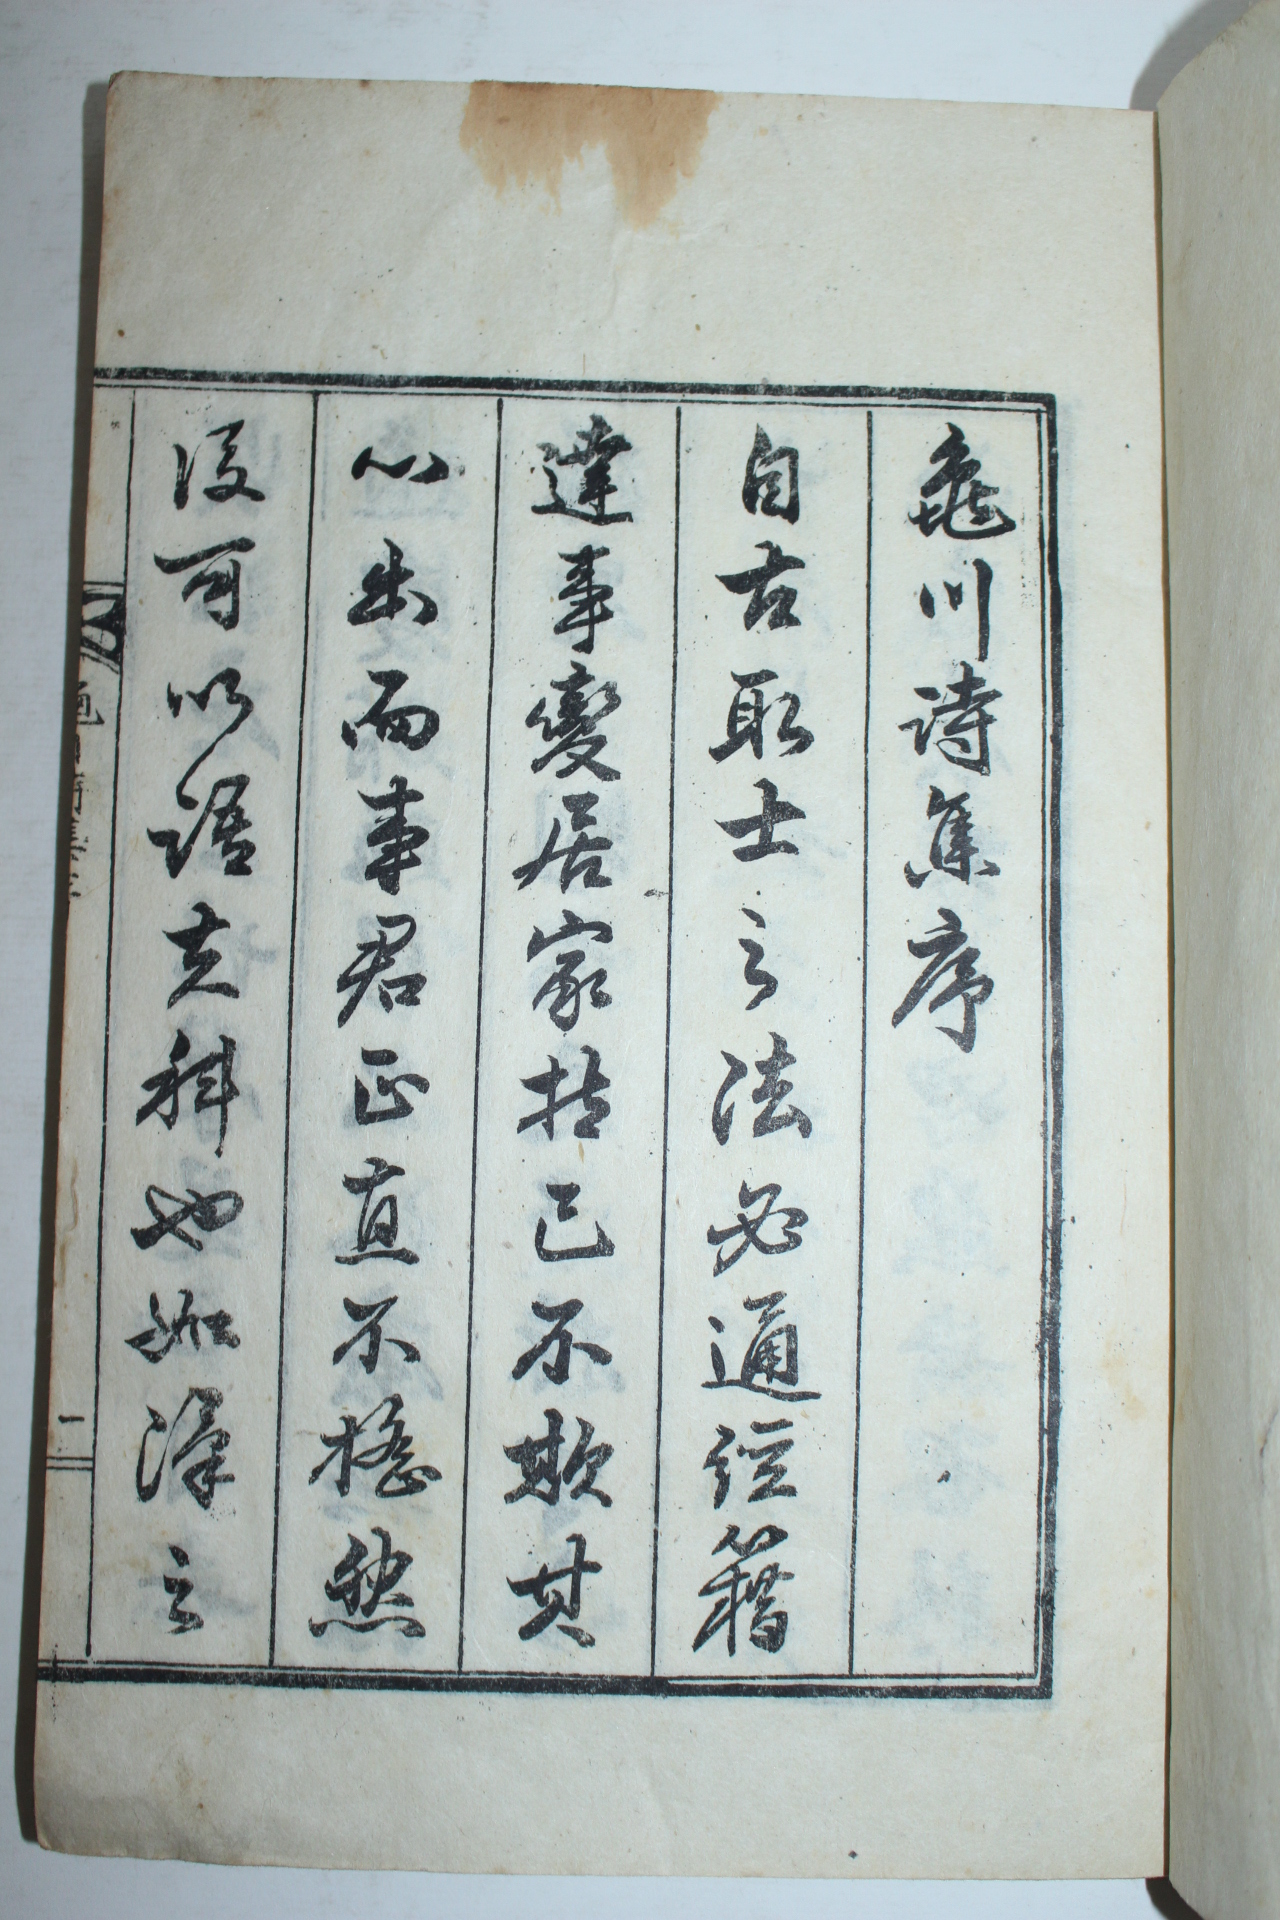 龜川詩集序
自古取士之法必通經籍
達事變居家持己不欺其
心出而事君正直不撓然
後可以語之科也如漢之
龜川詩集序
一